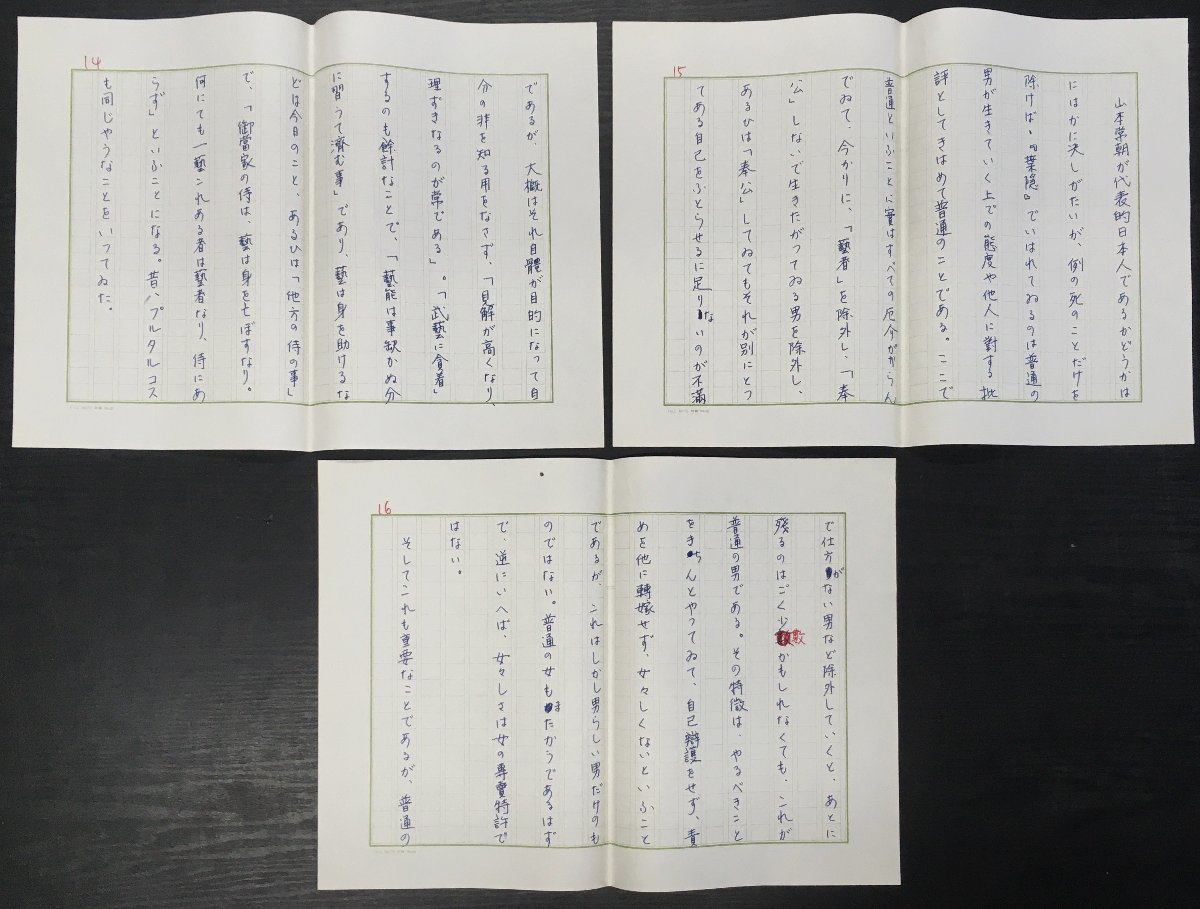 14
であるが、大概はそれ自體が目的になつて自
分の非を知る用をなさず、「見解が高くなり、
理ずきなるのが常である」。「武藝に貪着」
するのも餘計なことで、「藝能は事缺かぬ分
に習うて濟む事」であり、藝は身を助けるな
どは今日のこと、あるひは「他方の侍の事」
で、「御當家の侍は、藝は身を亡ぼすなり。
何にても一藝これある者は藝者なり、侍にあ
らず」といふことになる。昔ハプルタルコス
も同じやうなことをいつてゐた。
15
山本常朝が代表的日本人であるかどうかは
にはかに決しがたいが、例の死のことだけを
除けば、『葉隠』でいはれてゐるのは普通の
男が生きていく上での態度や他人に對する批
評としてきはめて普通のことである。ここで
普通といふことに實はすべての厄介がからん
でゐて、今かりに、「藝者」を除外し、「奉
公」しないで生きたがつてゐる男を除外し、
あるひは「奉公」してゐてもそれが別にとつ
てある自己をふとらせるに足りないのが不滿
16
で仕方がない男など除外していくと、あとに
殘るのはごく少數かもしれなくても、これが
普通の男である。その特徴は、やるべきこと
をきちんとやつてゐて、自己辯護をせず、責
めを他に轉嫁せず、女々しくないといふこと
であるが、これはしかし男らしい男だけのも
のではない。普通の女もまたかうであるはず
で、逆にいへば、女々しさは女の專賣特許で
はない。
そしてこれも重要なことであるが、普通の